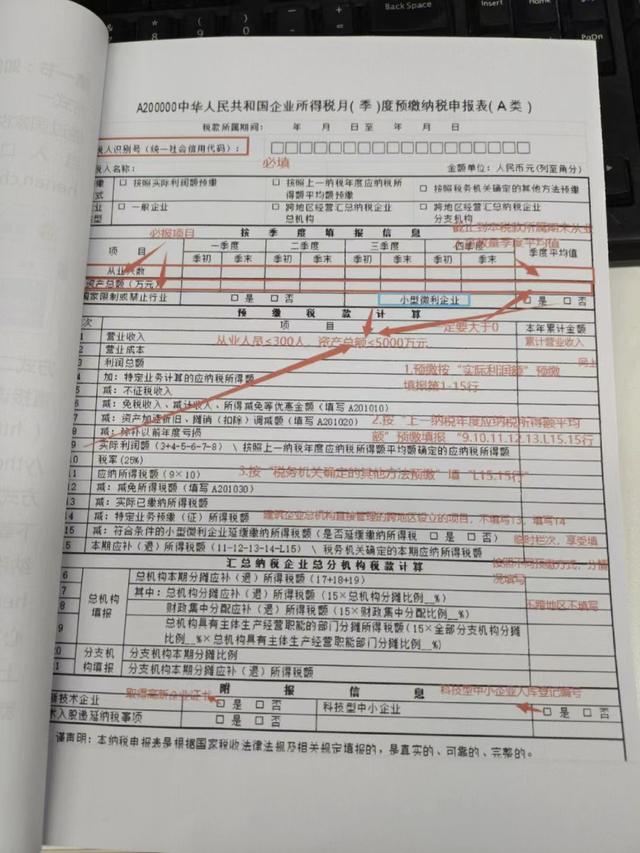 A200000中华人民共和国企业所得税月(季)度预缴纳税申报表(A类)
税款所属期间: 年 月 日 至 年 月 日
税人识别号(统一社会信用代码):
必填
税人名称: 金额单位:人民币元(列至角分)
按照实际利润额预缴 按照上一纳税年度应纳税所得额平均额预缴 按照税务机关确定的其他方法预缴
一般企业 跨地区经营汇总纳税企业总机构 跨地区经营汇总纳税企业分支机构
按季度填报信息
必报项目
项目 一季度 二季度 三季度 四季度 季度平均值
季初 季末 季初 季末 季初 季末 季初 季末
截止到本税款所属期末从业
数量季度平均值
从业人数
资产总额(万元)
国家限制或禁止行业 是 否 小型微利企业 是 否
预缴税款计算
次 项目 本年累计金额
一定要大于0
1 营业收入 累计营业收入
从业人员≤300人,资产总额≤5000万元
2 营业成本
3 利润总额
4 加:特定业务计算的应纳税所得额
1.预缴按“实际利润额”预缴
填报第1-15行
减:不征税收入
减:免税收入、减计收入、所得减免等优惠金额(填写A201010)
减:资产加速折旧、摊销(扣除)调减额(填写A201020)
2.按“上一纳税年度应纳税所得额平均
额”预缴填报“9.10.11.12.13.L15.15行
8 减:弥补以前年度亏损
9 实际利润额(3+4-5-6-7-8) \ 按照上一纳税年度应纳税所得额平均额确定的应纳税所得额
10 税率(25%)
11 应纳所得税额(9×10)
3.按“税务机关确定的其他方法预缴”填“L15.15行”
12 减:减免所得税额(填写A201030)
13 减:实际已缴纳所得税额
14 减:特定业务预缴(征)所得税额
建筑企业总机构直接管理的跨地区设立的项目,不填写13,填写14
15 减:符合条件的小型微利企业延缓缴纳所得税额(是否延缓缴纳所得税 是 否)
临时栏次,享受填
5 本期应补(退)所得税额(11-12-13-14-L15) \ 税务机关确定的本期应纳所得税额
汇总纳税企业总分机构税款计算
6 总机构填报 总机构本期分摊应补(退)所得税额(17+18+19)
7 其中:总机构分摊应补(退)所得税额(15×总机构分摊比例__%)
8 财政集中分配应补(退)所得税额(15×财政集中分配比例__%)
不跨地区不填写
9 总机构具有主体生产经营职能的部门分摊所得税额(15×全部分支机构分摊比例__%×总机构具有主体生产经营职能部门分摊比例__%)
20 分支机构填报 分支机构本期分摊比例
21 分支机构本期分摊应补(退)所得税额
附报信息
取得高新企业证书
科技型中小企业入库登记编号
技术企业 是 否 科技型中小企业 是 否
术入股递延纳税事项 是 否
谨声明:本纳税申报表是根据国家税收法律法规及相关规定填报的,是真实的、可靠的、完整的。
Back Space
PrtSc
PaUp
PaDn